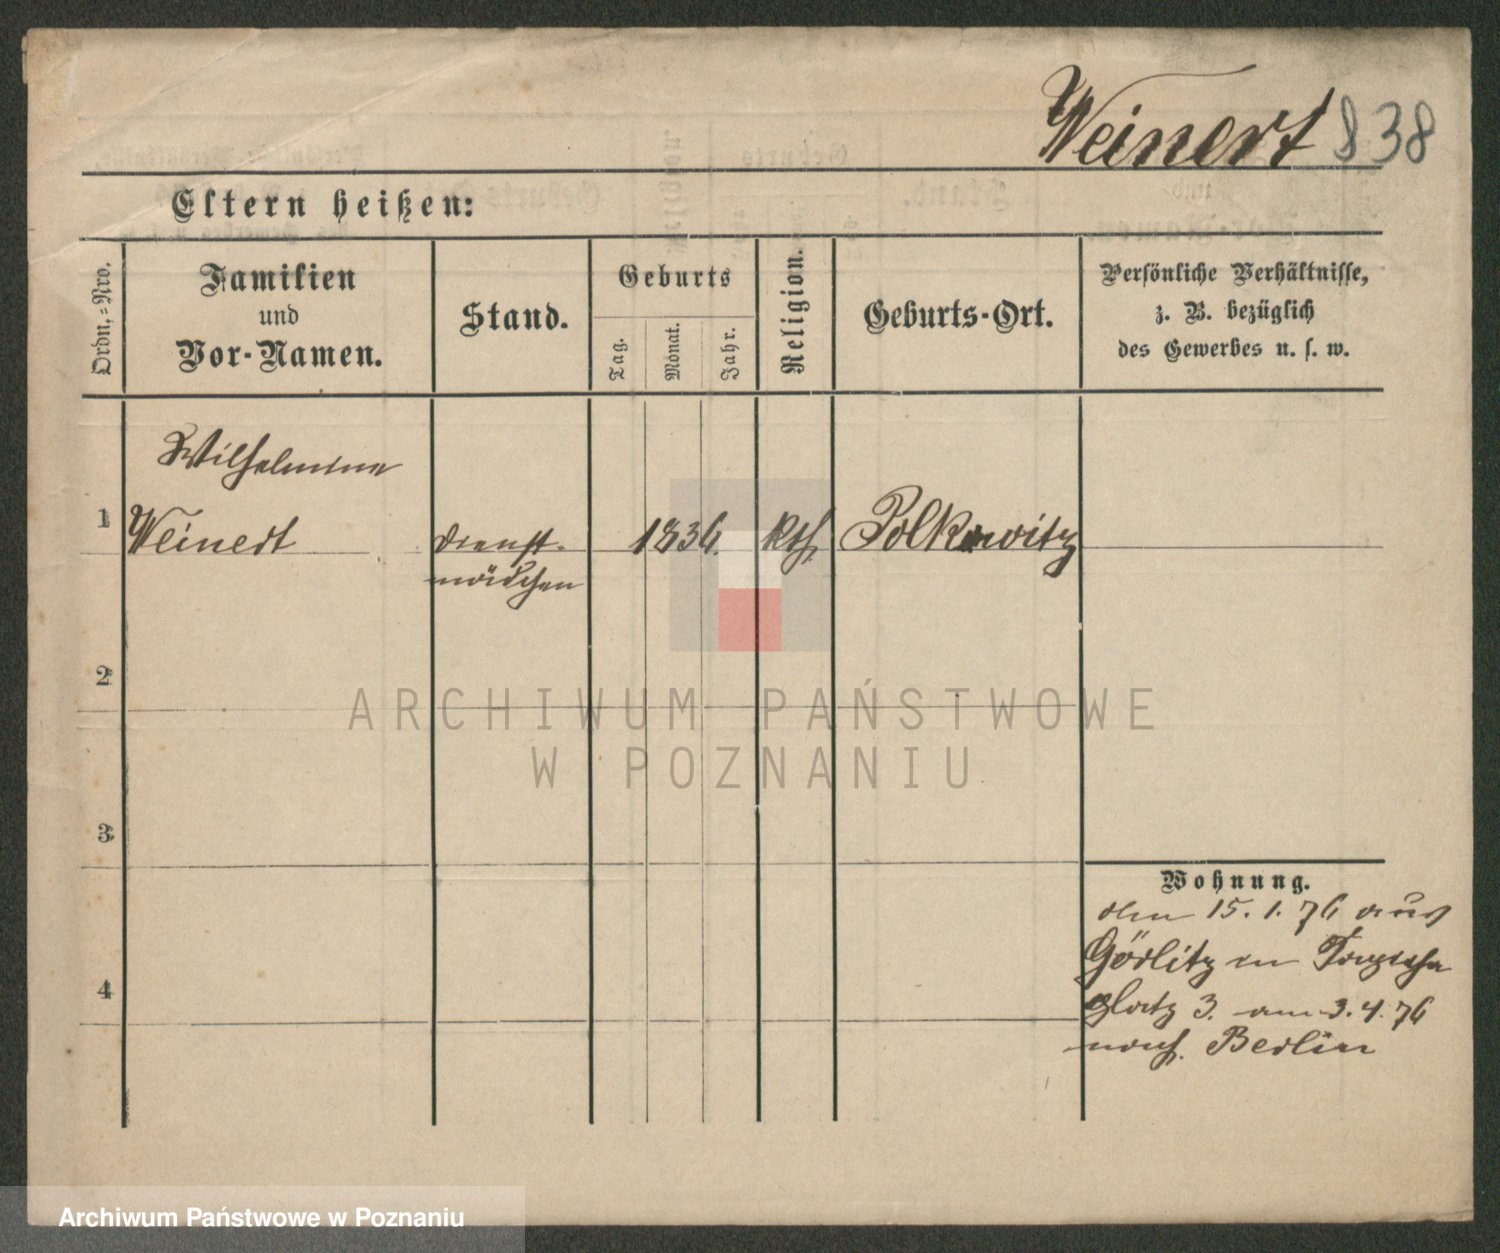 Weinert 838
Eltern heißen:
Ordn.-Nro.
Familien
und
Vor-Namen.
Stand.
Geburts
Tag.
Monat.
Jahr.
Religion.
Geburts-Ort.
Persönliche Verhältnisse,
z. B. bezüglich
des Gewerbes u. s. w.
Wilhelmine
1 Weinert Dienst- 1836. Kth. Polkowitz
mädchen
2
ARCHIWUM PAŃSTWOWE
W POZNANIU
3
Wohnung.
den 15.1.76 aus
Görlitz
4
platz 3. am 3.4.76
nach Berlin
Archiwum Państwowe w Poznaniu